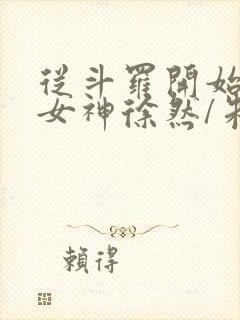 從斗羅開始
女神徐然/
賴得